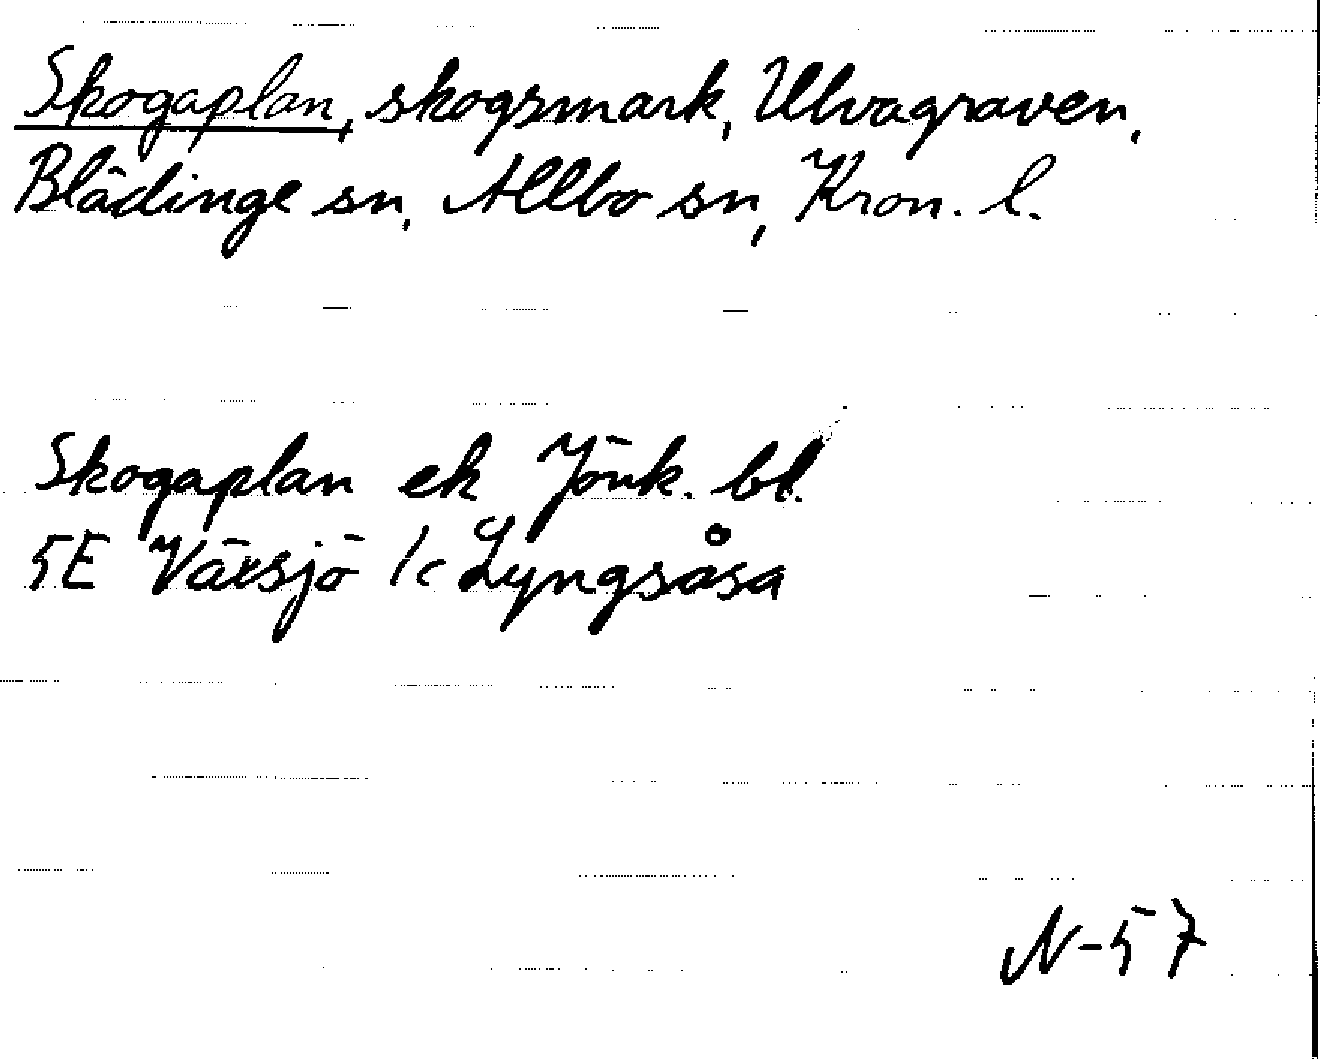 Skogaplan, skogsmark, Ulvagraven,
Blädinge sn, Allbo sn, Kron. l.
Skogaplan ek Jönk. bl.
5E Växsjö 1c Lyngsåsa
N-57